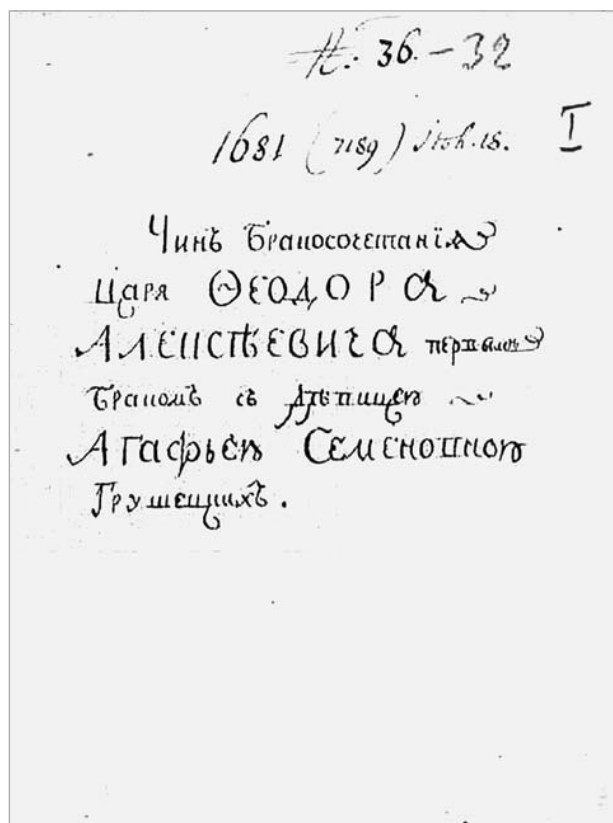 №: 36.-32
1681 (7189) Июл. 18. I
Чинъ бракосочетанїя
Царя ѲЕОДОРА
АЛЕКСѢЕВИЧА первымъ
бракомъ съ дѣвицею
Агафьею Семеновною
Грушецкихъ.